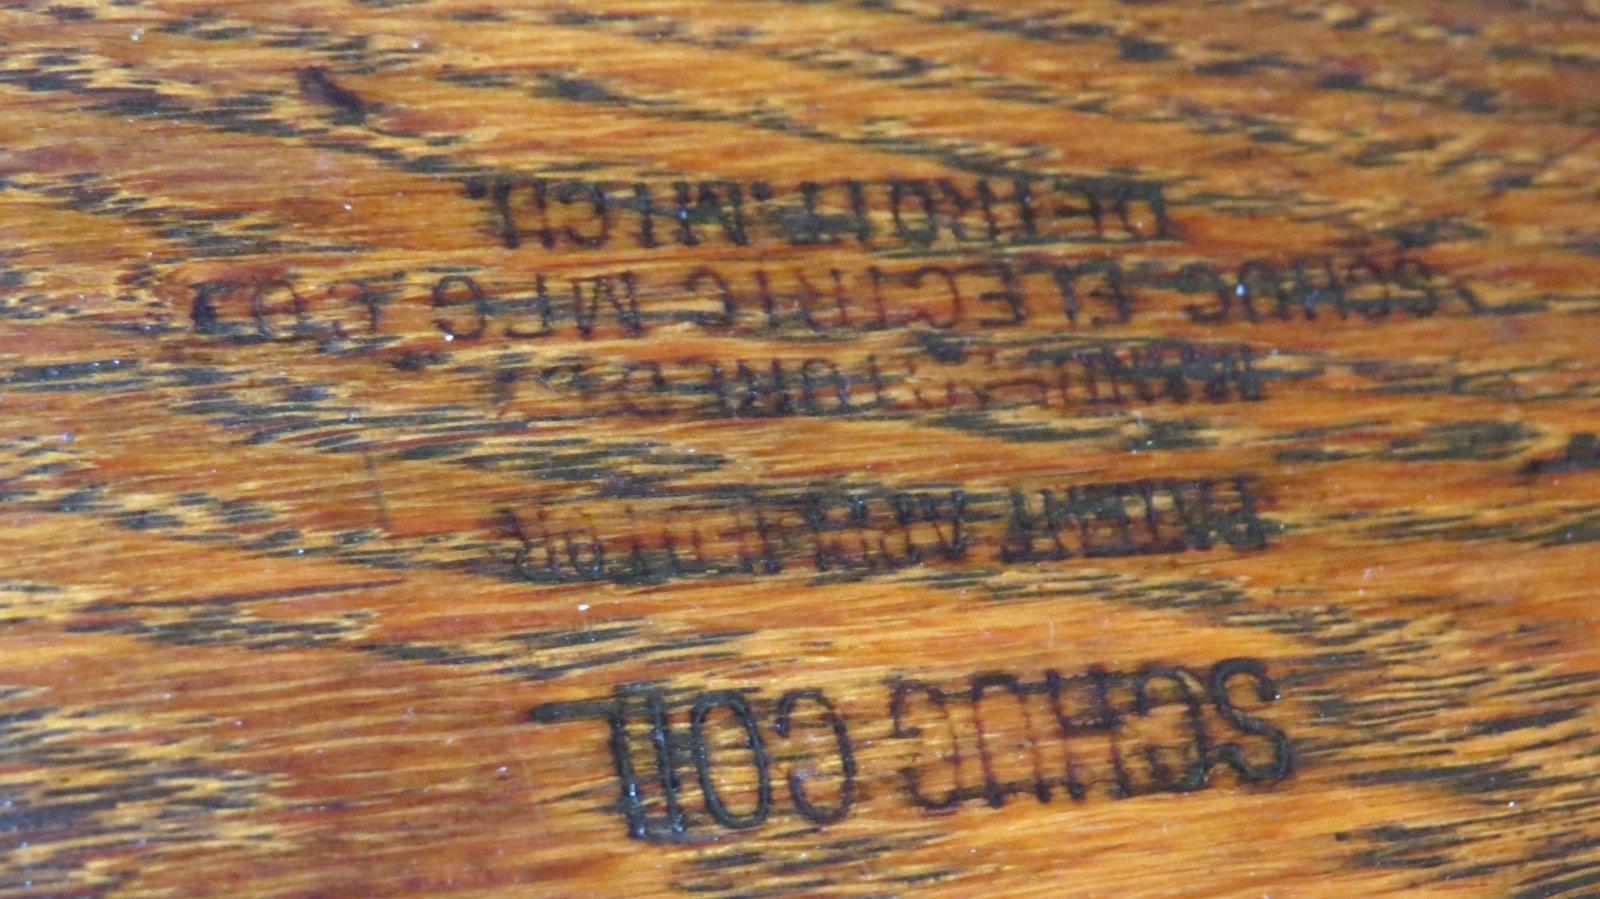 SCHUG COIL
PATENT APPLIED FOR
MANUFACTURED BY
SCHUG ELECTRIC MFG. CO.,
DETROIT, MICH.